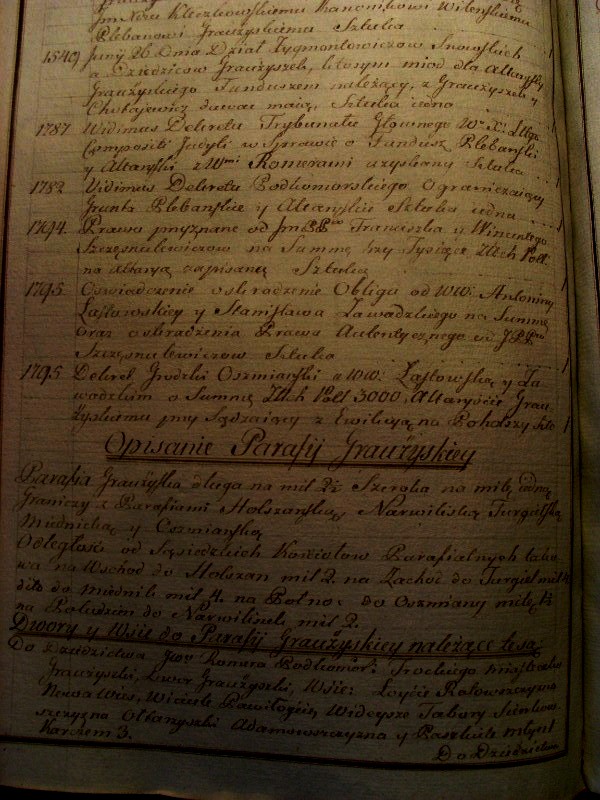 Jm Xdza Kleczkowskiemu Kanonikowi Wileńskiemu
Plebanowi Graużyskiemu Sztuka
1540 Junij 26 Dnia Dział Zygmontowiczow Snowskich
a Dziedzicow Graużyszek, ktorym miod dla Altaryi
Graużyskiego Funduszem należący, z Graużyszek y
Chokajewicz dawać maią, Sztuka iedna
1787 Widimus Dekretu Trybunału Głownego
Compositi Judyti w Sprawie o Fundusz Plebański
y Altaryski z Wmi Romerami uzyskany Sztuka
1782 Vidimus Dekretu Podkomorskiego Ograniczaiący
Grunta Plebańskie y Altaryskie Sztuka iedna
1794 Prawo przyznane od Franciszka y Wincentego
Szczęsnulewiczow na Summę trzy Tysiące Złch Pol:
na Altaryą zapisaną Sztuka
1795 Oswiadczenie o skradzenie Obligu od WW. Antoniny
Łastowskiey y Stanisława Zawadzkiego na Summę
oraz o skradzenia Prawa Autentycznego od
Szczęsnulewiczow Sztuka
1795 Dekret Grodzki Oszmiański z WW. Łastowską y Za
wadzkim o Summę Złch Pol: 3000, Altaryscie Grau
żyskiemu przy Sądzaiący z Ewikcyą na Poholszy
Opisanie Parafij Graużyskiey
Parafia Graużyska długa na mil 2½ Szeroka na milę iedną
Graniczy z Parafiami Holszańską, Narwiliską Turgielską
Miednicką y Oszmiańską
Odległość od Sąsiedzkich Kościołow Parafialnych tako
wa na Wschod do Holszan mil 2. na Zachod do Turgiel mil 4
dito do Miednik mil 4. na Połnoc do Oszmiany milę 1½
na Południe do Narwiliszek mil 2.
Dwory y Wsie do Parafij Graużyskiey należące te są:
Do Dziedzictwa Jwo Romera Podkomor: Trockiego miasteczko
Graużyszki, Dwor Graużyszki, Wsie: Łoycie Rotowszczyzna
Nowa Wies, Wiciuki Pawiłoycie, Wideysze Tabory Sienkow
szczyzna Oktaryszki Adamowszczyzna y Paszkicie młyn 1
Karczem 3.
Do Dziedzictwa